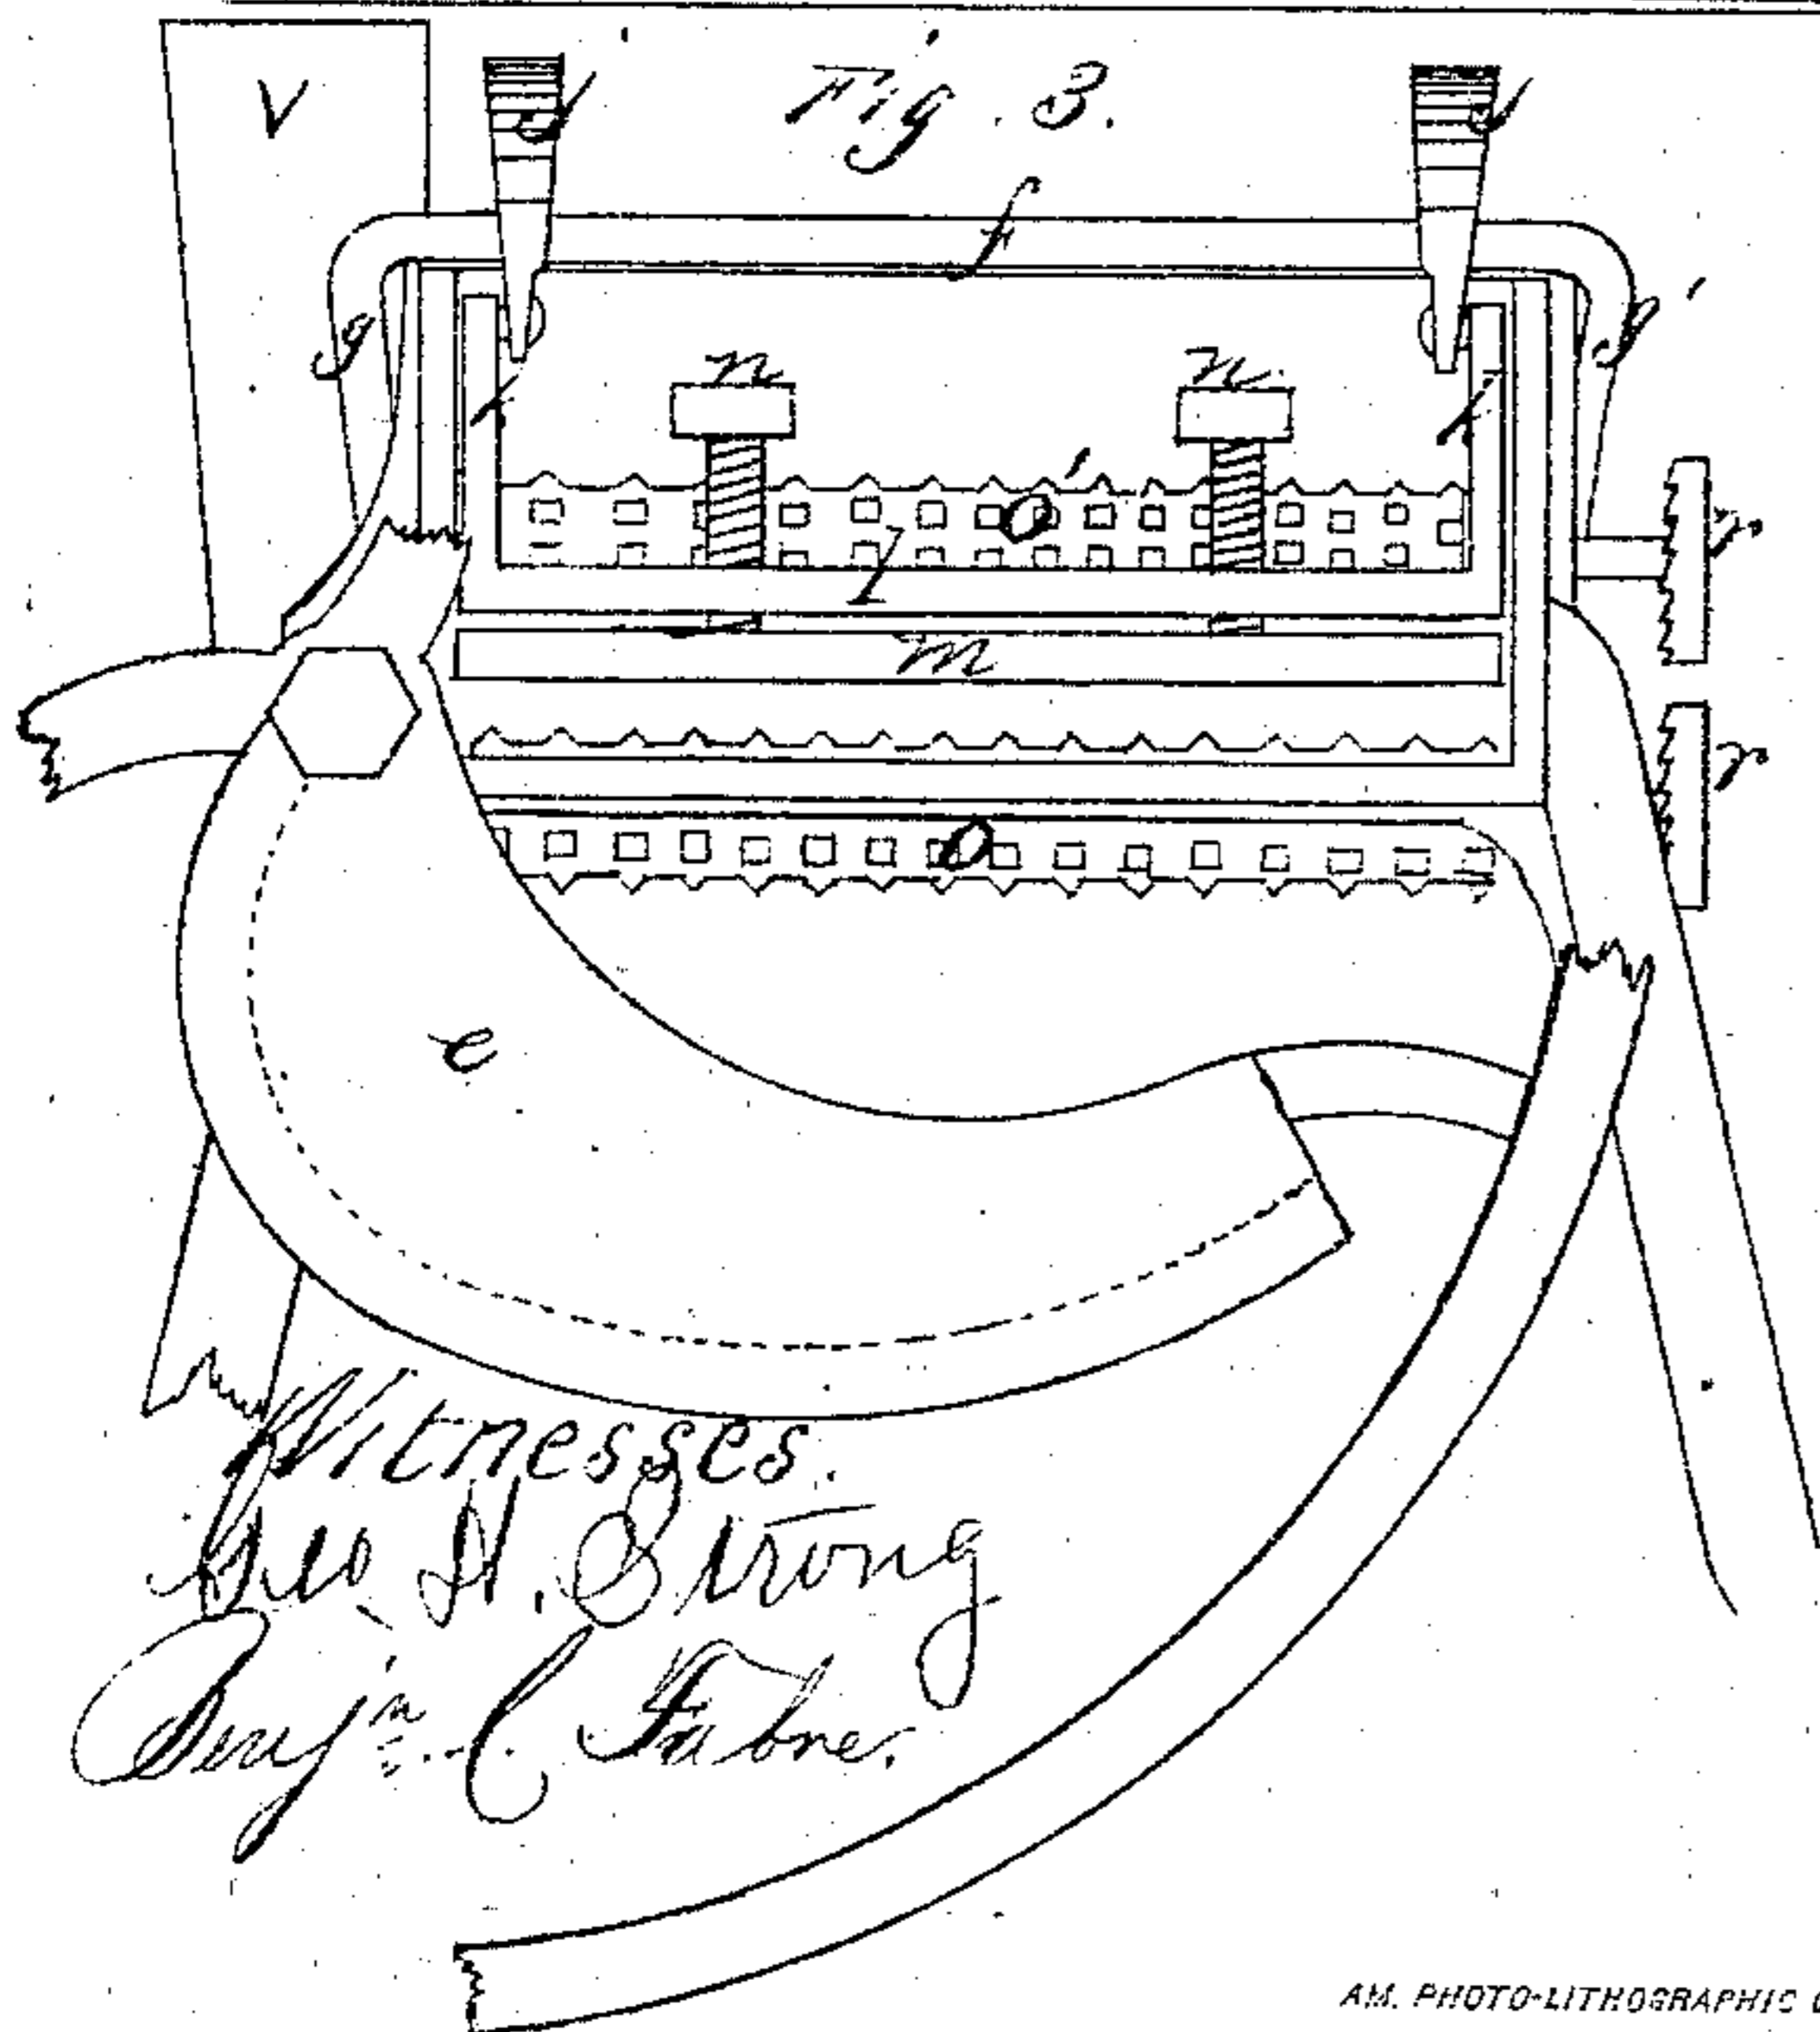 V
Fig. 3.
f
g
g'
n
n
k
k
o'
l
r
m
r
o
e
Witnesses.
Geo. H. Strong
Benjn. C
AM. PHOTO-LITHOGRAPHIC